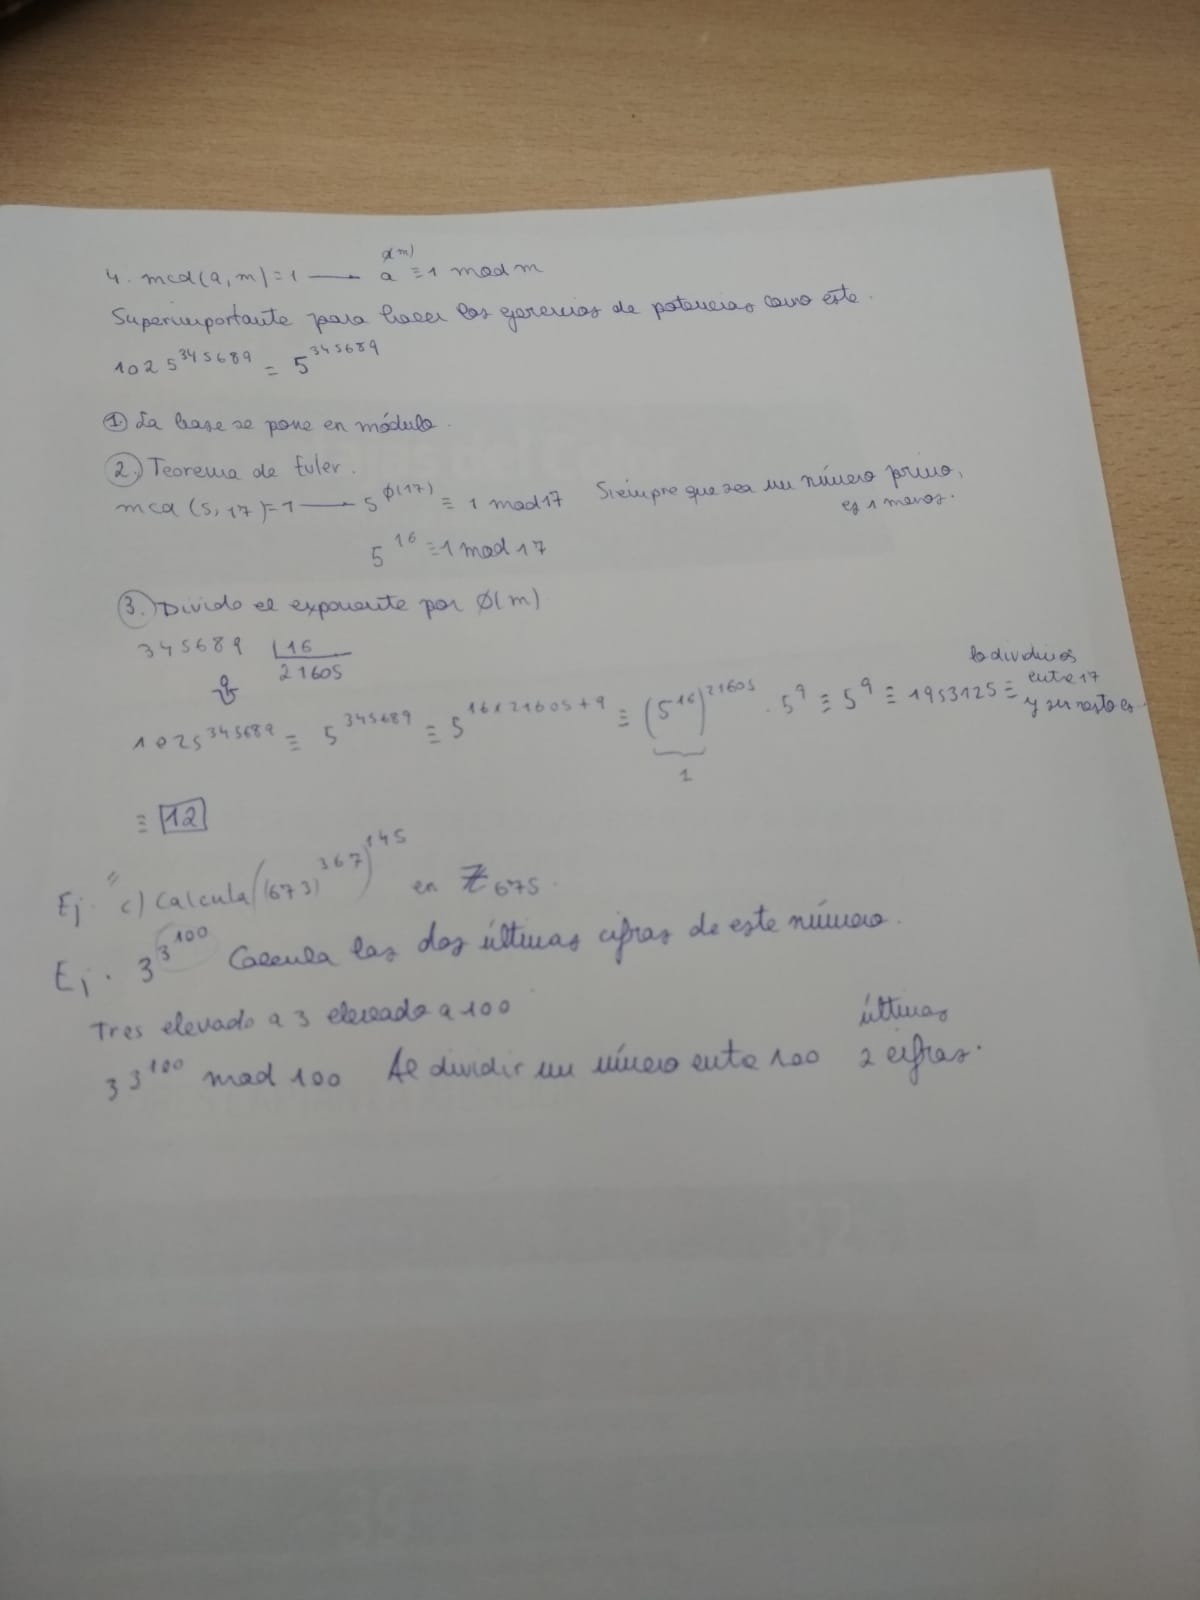 4. mcd(a, m) = 1 ⟶ a^ϕ(m) ≡ 1 mod m
Superimportante para hacer los ejercicios de potencias como este.
1025^345689 ≡ 5^345689
① La base se pone en módulo.
② Teorema de Euler.
mcd (5, 17) = 1 ⟶ 5^ϕ(17) ≡ 1 mod 17 Siempre que sea un número primo, es 1 menos.
5^16 ≡ 1 mod 17
③ Divido el exponente por ϕ(m)
345689 | 16
9 21605
1025^345689 ≡ 5^345689 ≡ 5^16x21605+9 ≡ (5^16)^21605 . 5^9 ≡ 5^9 ≡ 1953125 ≡ lo dividimos entre 17 y su resto es
1
≡ 12
Ej. " c) Calcula ((673)^367)^145 en ℤ675.
Ej. 3^3^100 Calcula las dos últimas cifras de este número.
Tres elevado a 3 elevado a 100
3^3^100 mod 100 Al dividir un número entre 100 últimas 2 cifras.